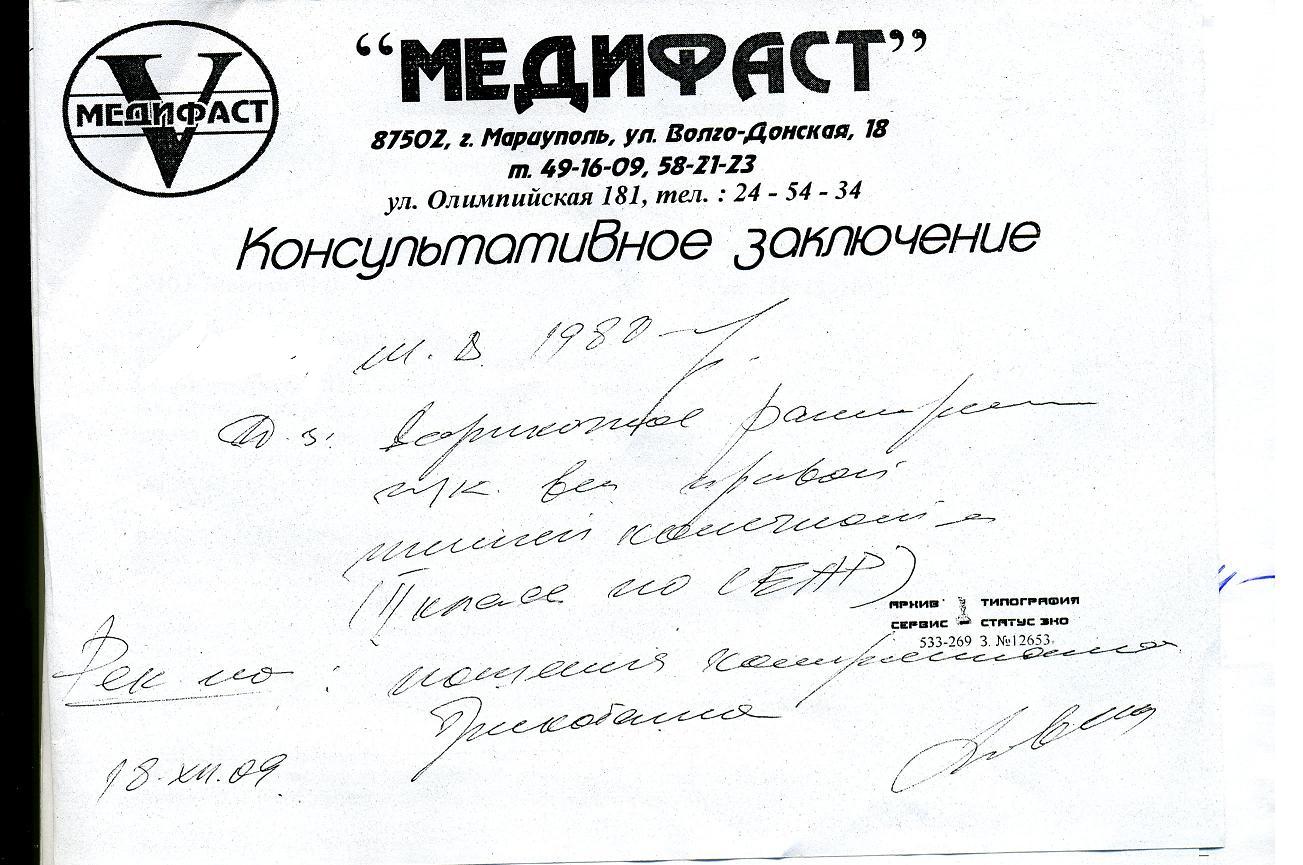 МЕДИФАСТ
“МЕДИФАСТ”
87502, г. Мариуполь, ул. Волго-Донская, 18
т. 49-16-09, 58-21-23
ул. Олимпийская 181, тел. : 24 - 54 - 34
Консультативное заключение
1980
D.з: Варикозное расширен
п/к. вен правой
нижней конечности
(II класс по CEAP)
АРХИВ ТИПОГРАФИЯ
СЕРВИС СТАТУС ЭКО
533-269 З. №12653
Рек-но : ношения компрессионного
Трикотажа
18.XII.09